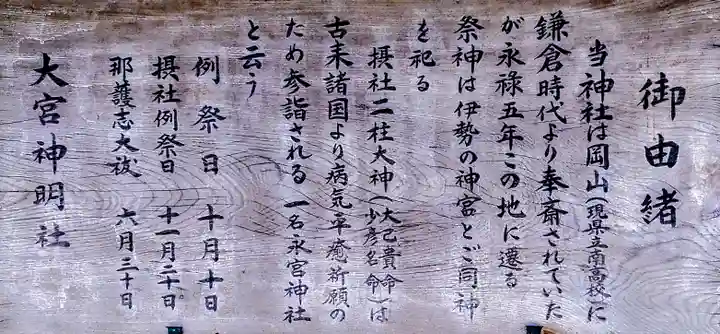 御由緒
当神社は岡山(現県立南高校)に
鎌倉時代より奉斎されていた
が永禄五年この地に遷る
祭神は伊勢の神宮とご同神
を祀る
摂社二柱大神(大己貴命 少彦名命)は
古来諸国より病気平癒祈願の
ため参詣される 一名永宮神社
と云う
例祭日 十月十日
摂社例祭日 十一月二十日
那護志大祓 六月三十日
大宮神明社